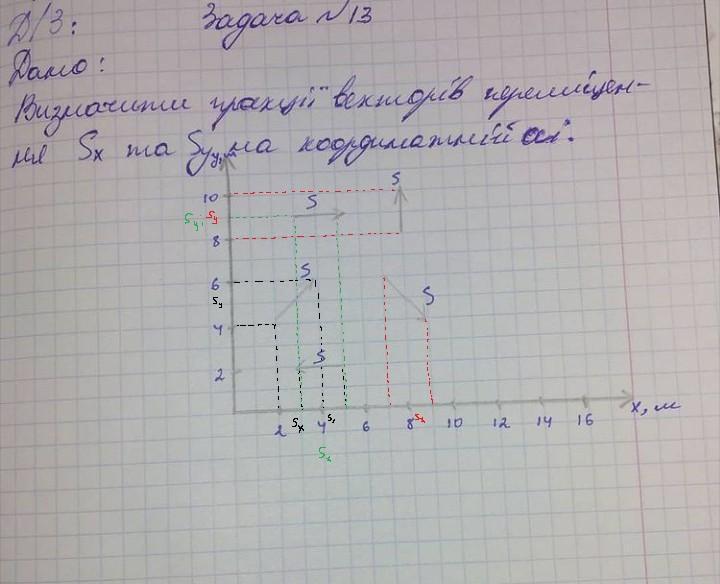 Д/З: Задача №13
Дано:
Визначити проекції векторів переміщен-
ня Sx та Sy на координатній осі.
y, м
10 S S
Sy, Sy
8
6 S S
Sy
4
2 S
2 Sx 4 Sx 6 8 Sx 10 12 14 16 x, м
Sx